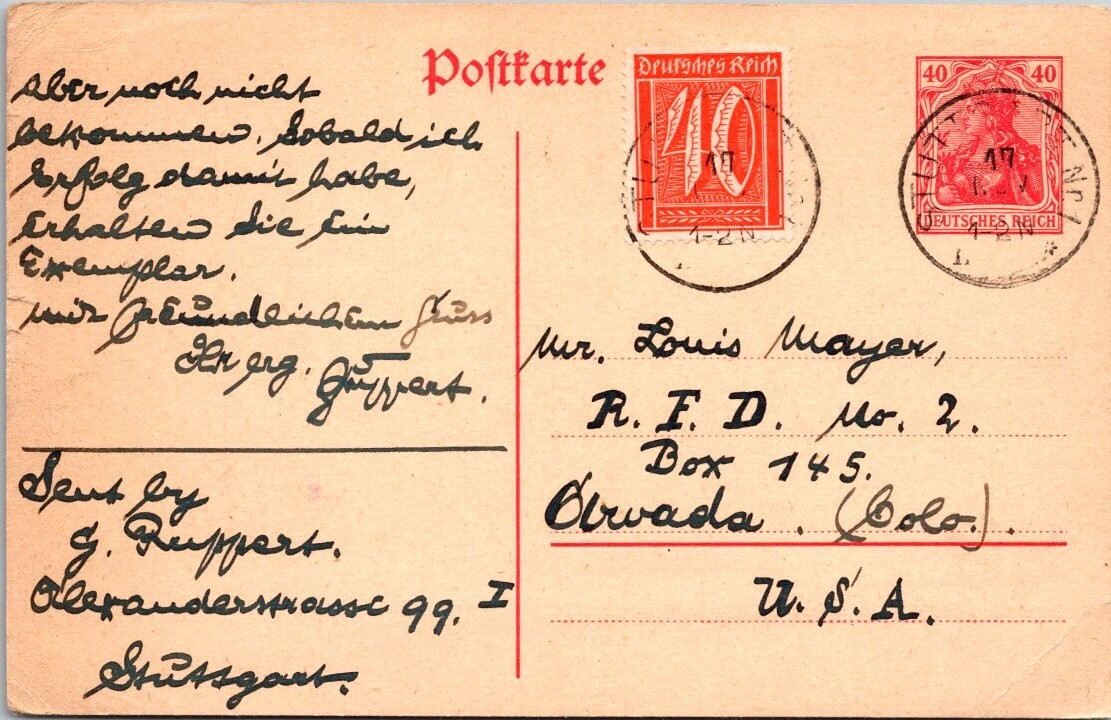 Postkarte
aber noch nicht
bekommen. Sobald ich
Erfolg damit habe,
Erhalten Sie Ein
Exemplar.
mit freundlichem Gruss
Ihr erg.
Ruppert.
Sent by
G. Ruppert.
Alexanderstrasse 99. I
Stuttgart.
Deutsches Reich
40
STUTTGART
17
1-2 N
40 40
DEUTSCHES REICH
STUTTGART Nr 1
17
1-2 N
Mr. Louis Mayer,
R. F. D. No. 2.
Box 145.
Arvada. (Colo.).
U. S. A.